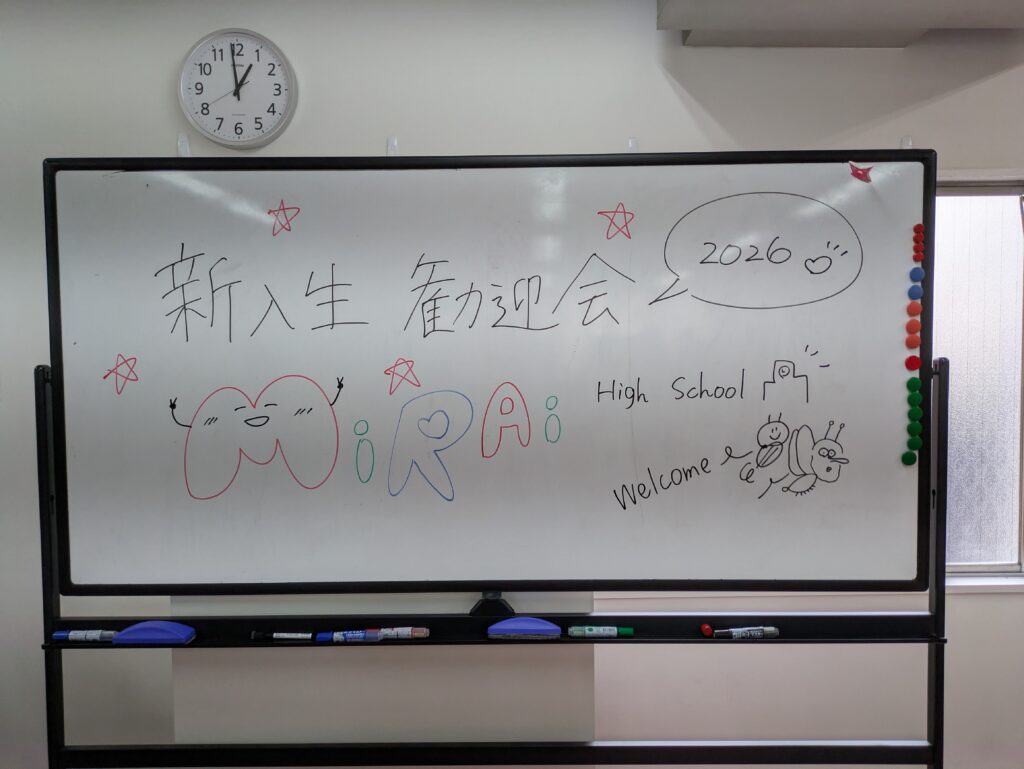 11 12 1
10 2
9 3
8 4
7 6 5
新入生 勧迎会
2026
MiRAi
High School
Welcome